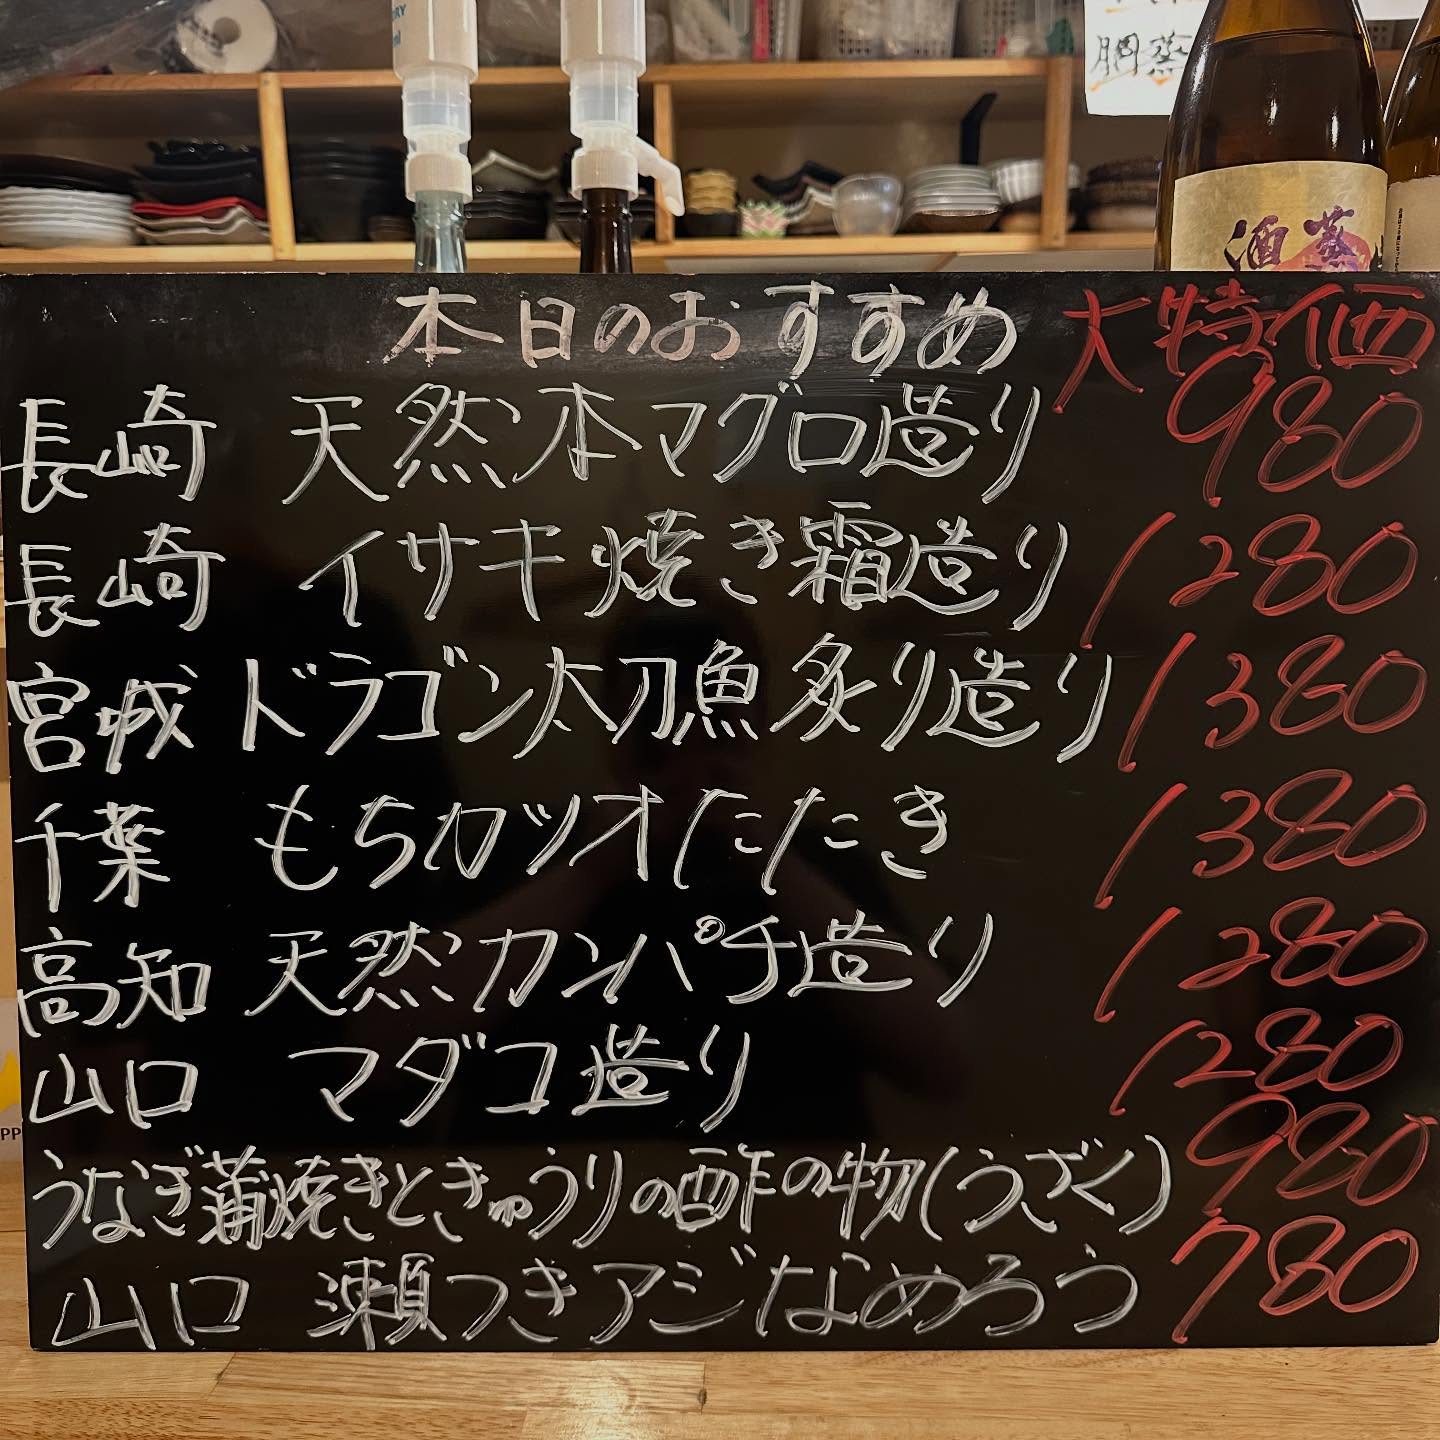 胴蒸
酒蒸
本日のおすすめ 大特価
長崎 天然本マグロ造り 980
長崎 イサキ焼き霜造り 1280
宮城 ドラゴン太刀魚炙り造り 1380
千葉 もちカツオたたき 1380
高知 天然カンパチ造り 1280
山口 マダコ造り 1280
うなぎ蒲焼きときゅうりの酢の物(うざく) 980
山口 瀬つきアジなめろう 780